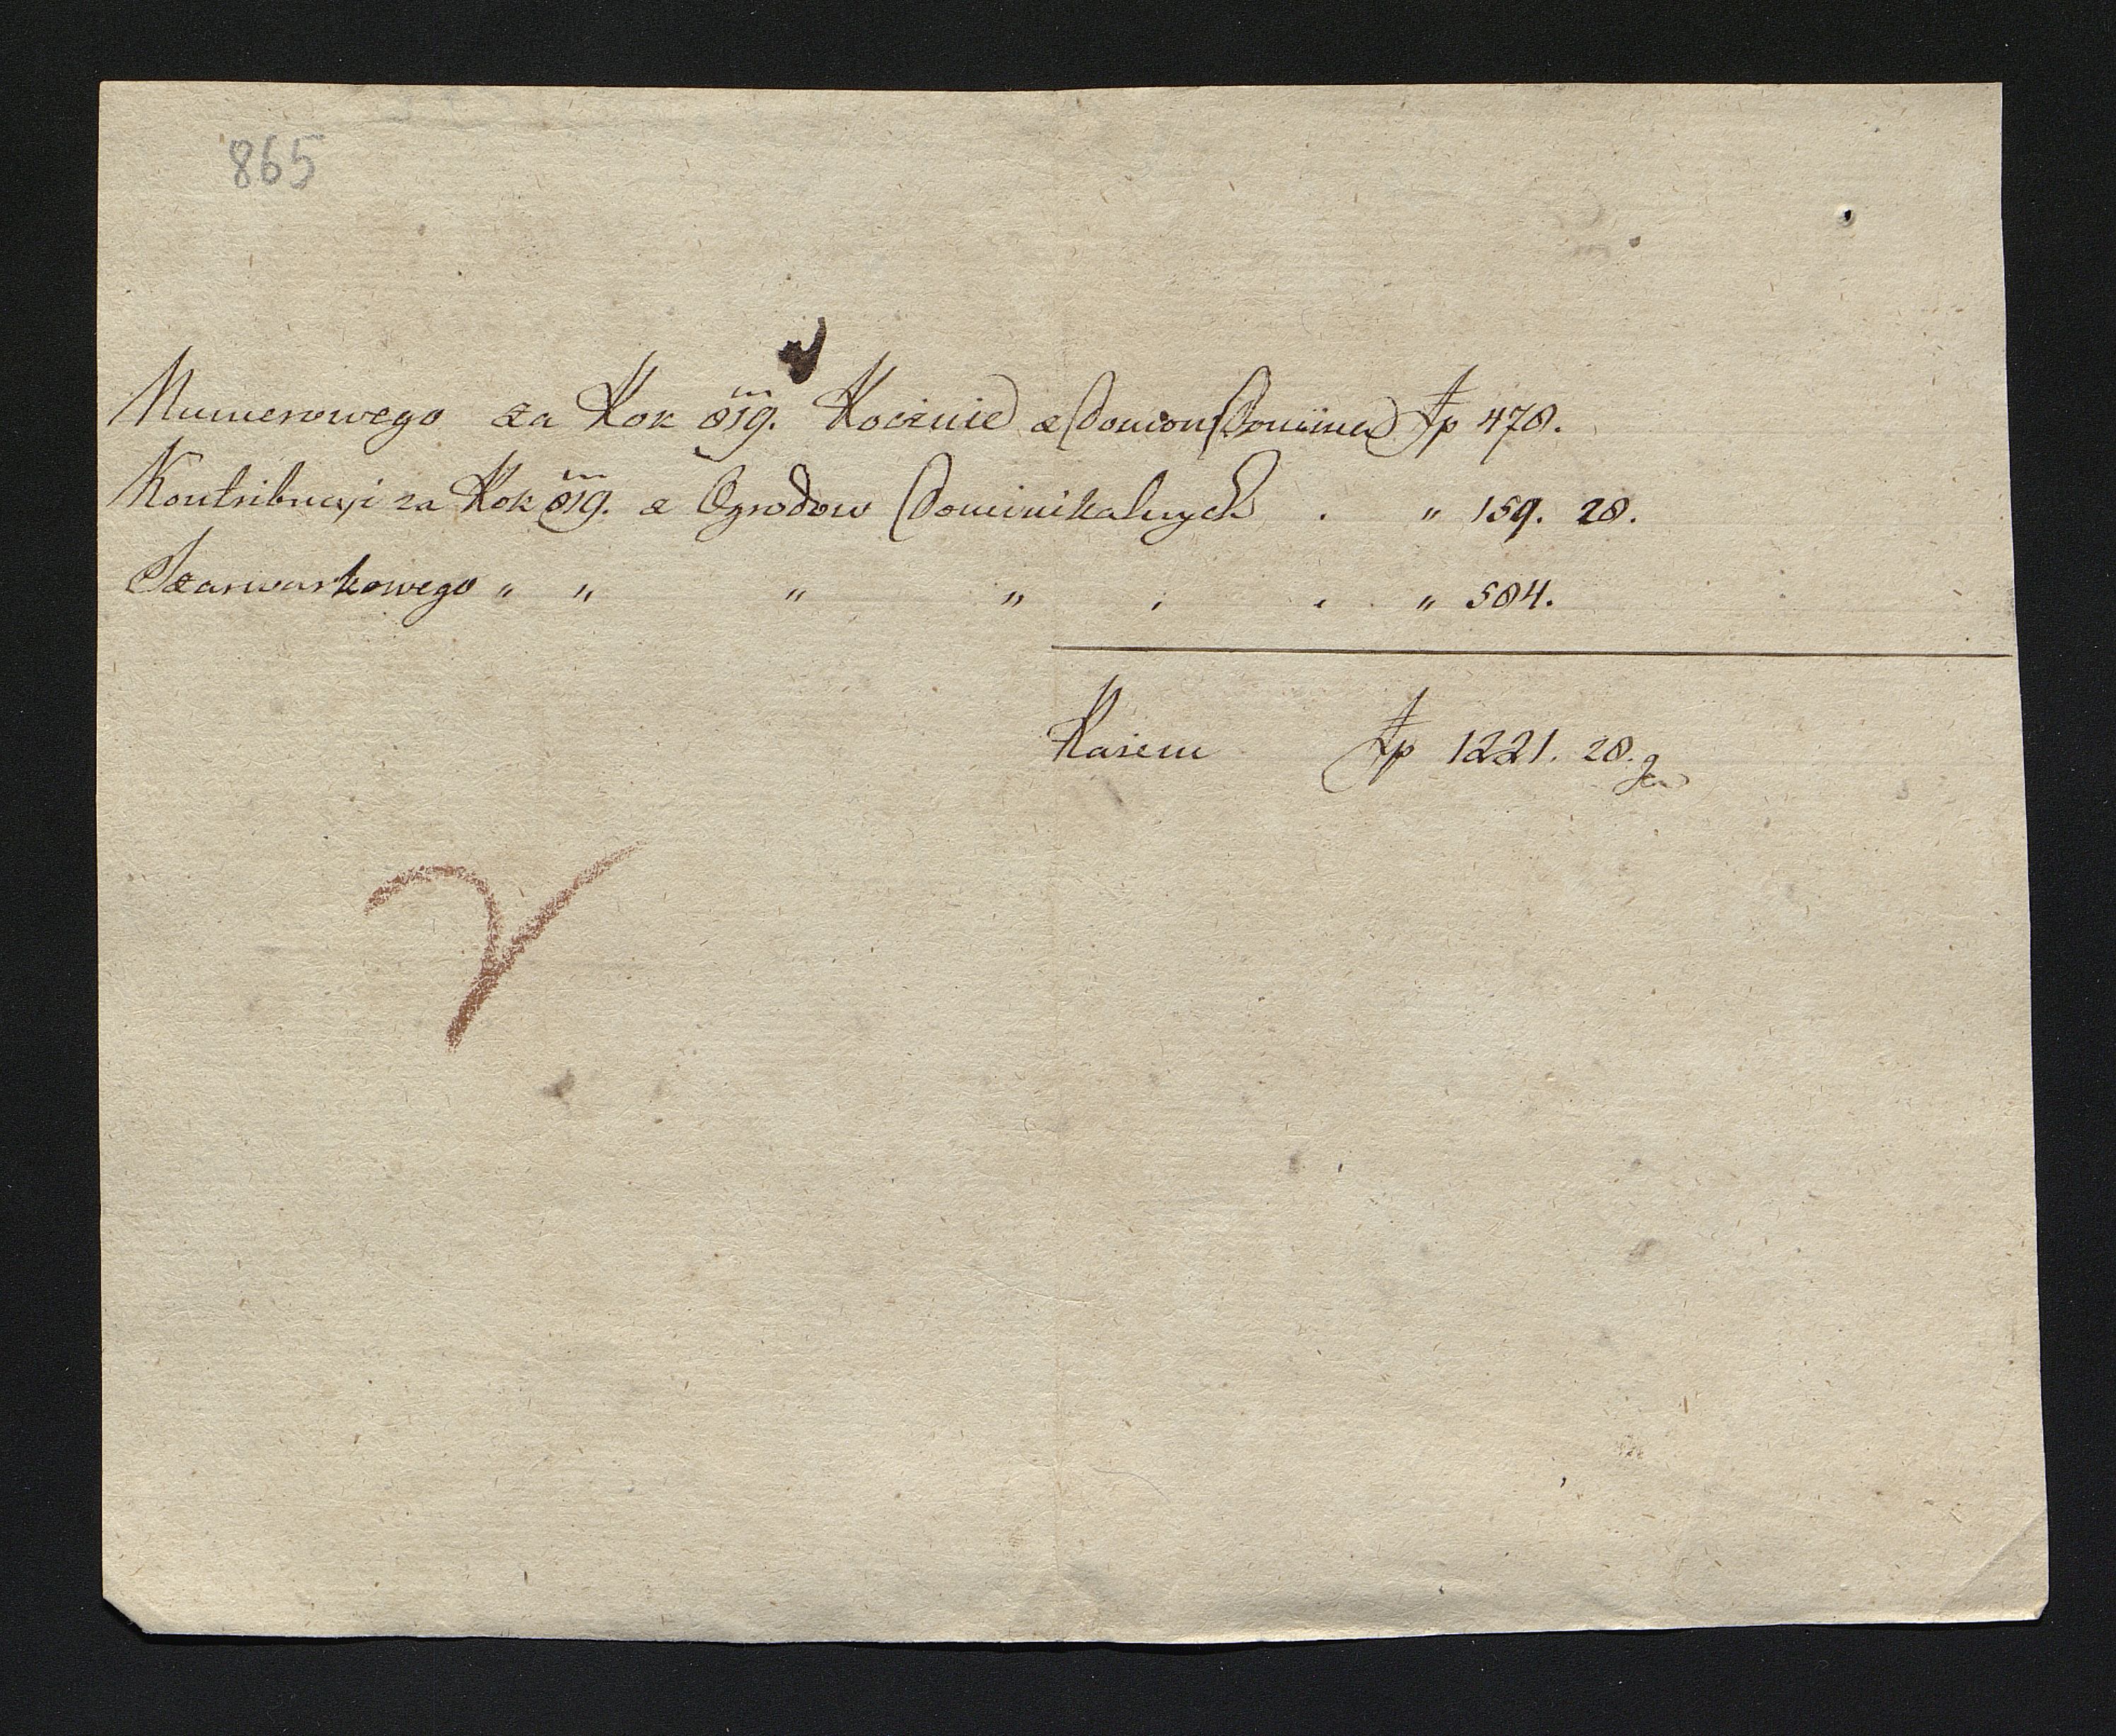 865
Numerowego za Rok 819. Rocznie z Domow Domina fp 478.
Kontribucyi za Rok 819. z Ogrodow Dominikalnych . " 159. 28.
Szarwarkowego " " " " . . " 584.
Razem fp 1221. 28. gr